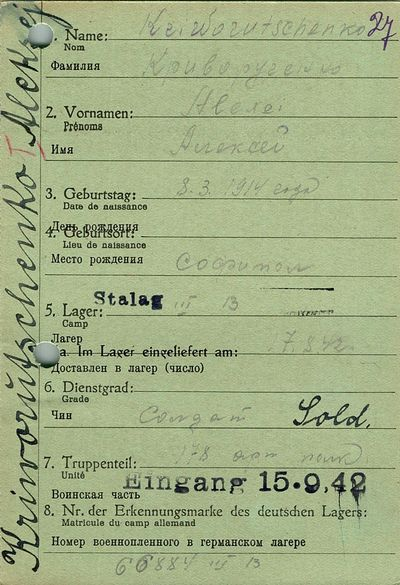 Kriworutschenko Aleksej
27
1. Name: Kriworutschenko
Nom
Фамилия Криворученко
2. Vornamen:
Prénoms
Имя Алексей
3. Geburtstag: 8.3.1914 года
Date de naissance
День рождения
4. Geburtsort:
Lieu de naissance
Место рождения
5. Lager: Stalag III B
Camp
Лагерь
5a. Im Lager eingeliefert am:
Доставлен в лагерь (число)
6. Dienstgrad:
Grade
Чин Солдат Sold.
7. Truppenteil: 178 арт полк
Unité
Eingang 15.9.42
Воинская часть
8. Nr. der Erkennungsmarke des deutschen Lagers:
Matricule du camp allemand
Номер военнопленного в германском лагере
66884 III B